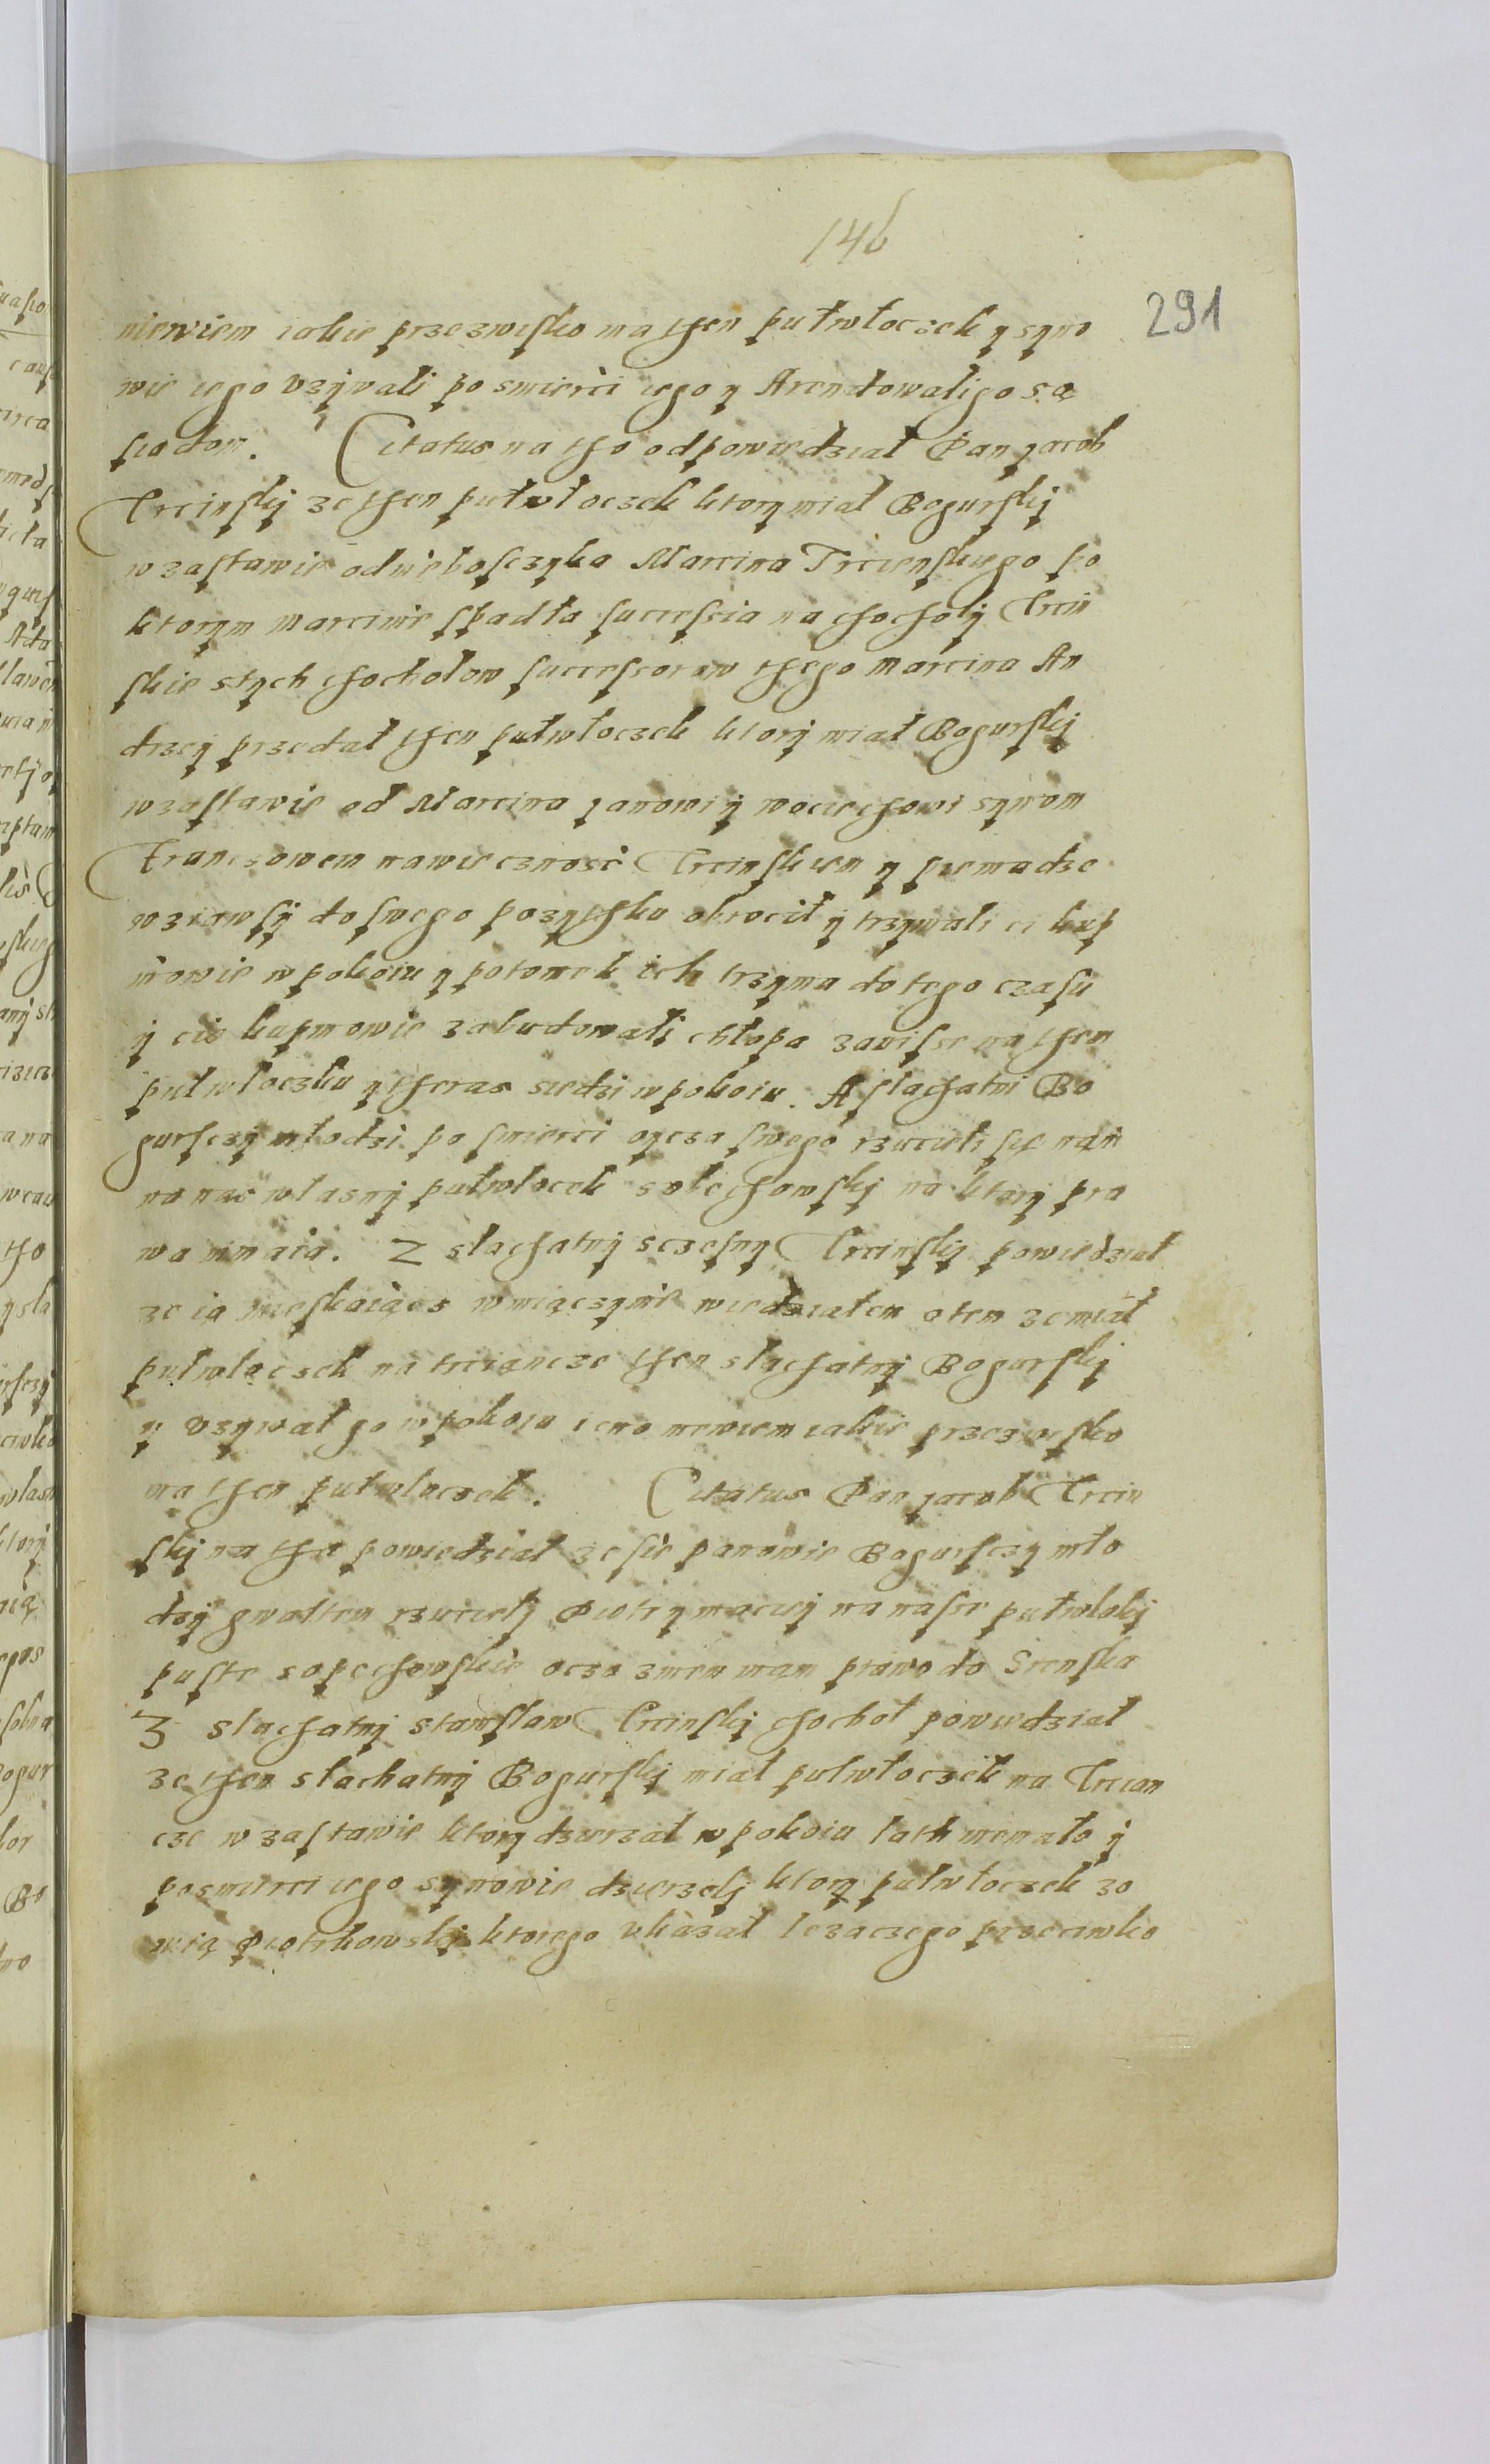 146
291
niewiem iakie przezwisko ma then pułwłoczek y syno
wie iego vzywali po smierci iego y Arendowali go są
siadom. Citatus na tho odpowiedział Pan Jacob
Trcinskÿ ze then pułwłoczek ktory miał Bogurskÿ
w zastawie od niebosczyka Marcina Trcienskiego po
ktorym Marcinie spadła successia na chochoły Trcin
skie s tych chochołow successorow thego Marcina An
drzey przedał then pułwłoczek ktorÿ miał Bogurskÿ
w zastawie od Marcina Janowi ÿ Wociechowi synom
Franczowem na wiecznosć Trcinskiem y pieniadze
wziawsÿ do swego pozÿthku obrocił y trzymali ci kup
niowie w pokoiu y potomek ich trzyma do tego czasu
ÿ cis kupniowie zabudowali chłopa zawisse na them
pułwłoczku y theras siedzi w pokoiu. A slachatni Bo
gurscÿ młodzi po smierci oycza swego rzucieli się na
na nas własnÿ pułwłocek solechowskÿ na ktorÿ pra
wa nimaia. 2 slachatnÿ sczesny Trcinskÿ powiedział
ze ia mieskaiącs w miączynie wiedziałem o tem ze miał
pułwłaczek na trciancze then slachatnÿ Bogurskÿ
y vzywał go w pokoiu ieno niewiem iakie przezwisko
ma then pułwłoczek. Citatus Pan Jacob Trcin
skÿ na tho powiedział ze sie panowie Bogursczy mło
dzÿ gwałtem rzucielÿ Piotr y Maciey na nasze pułwłokÿ
puste sopechowskie oczo zmem mam prawo do Sienska
3 slachatnÿ stanisław Trcinskÿ chochoł powiedział
ze then slachatnÿ Bogurskÿ miał pułwłoczek na Trcian
cze w zastawie ktory dzierzał w pokoiu lath niemało ÿ
po smierci iego synowie dzierzelÿ ktory pułwłoczek zo
wią Piotrkowskÿ ktorego vkazał lezaczego przeciwko